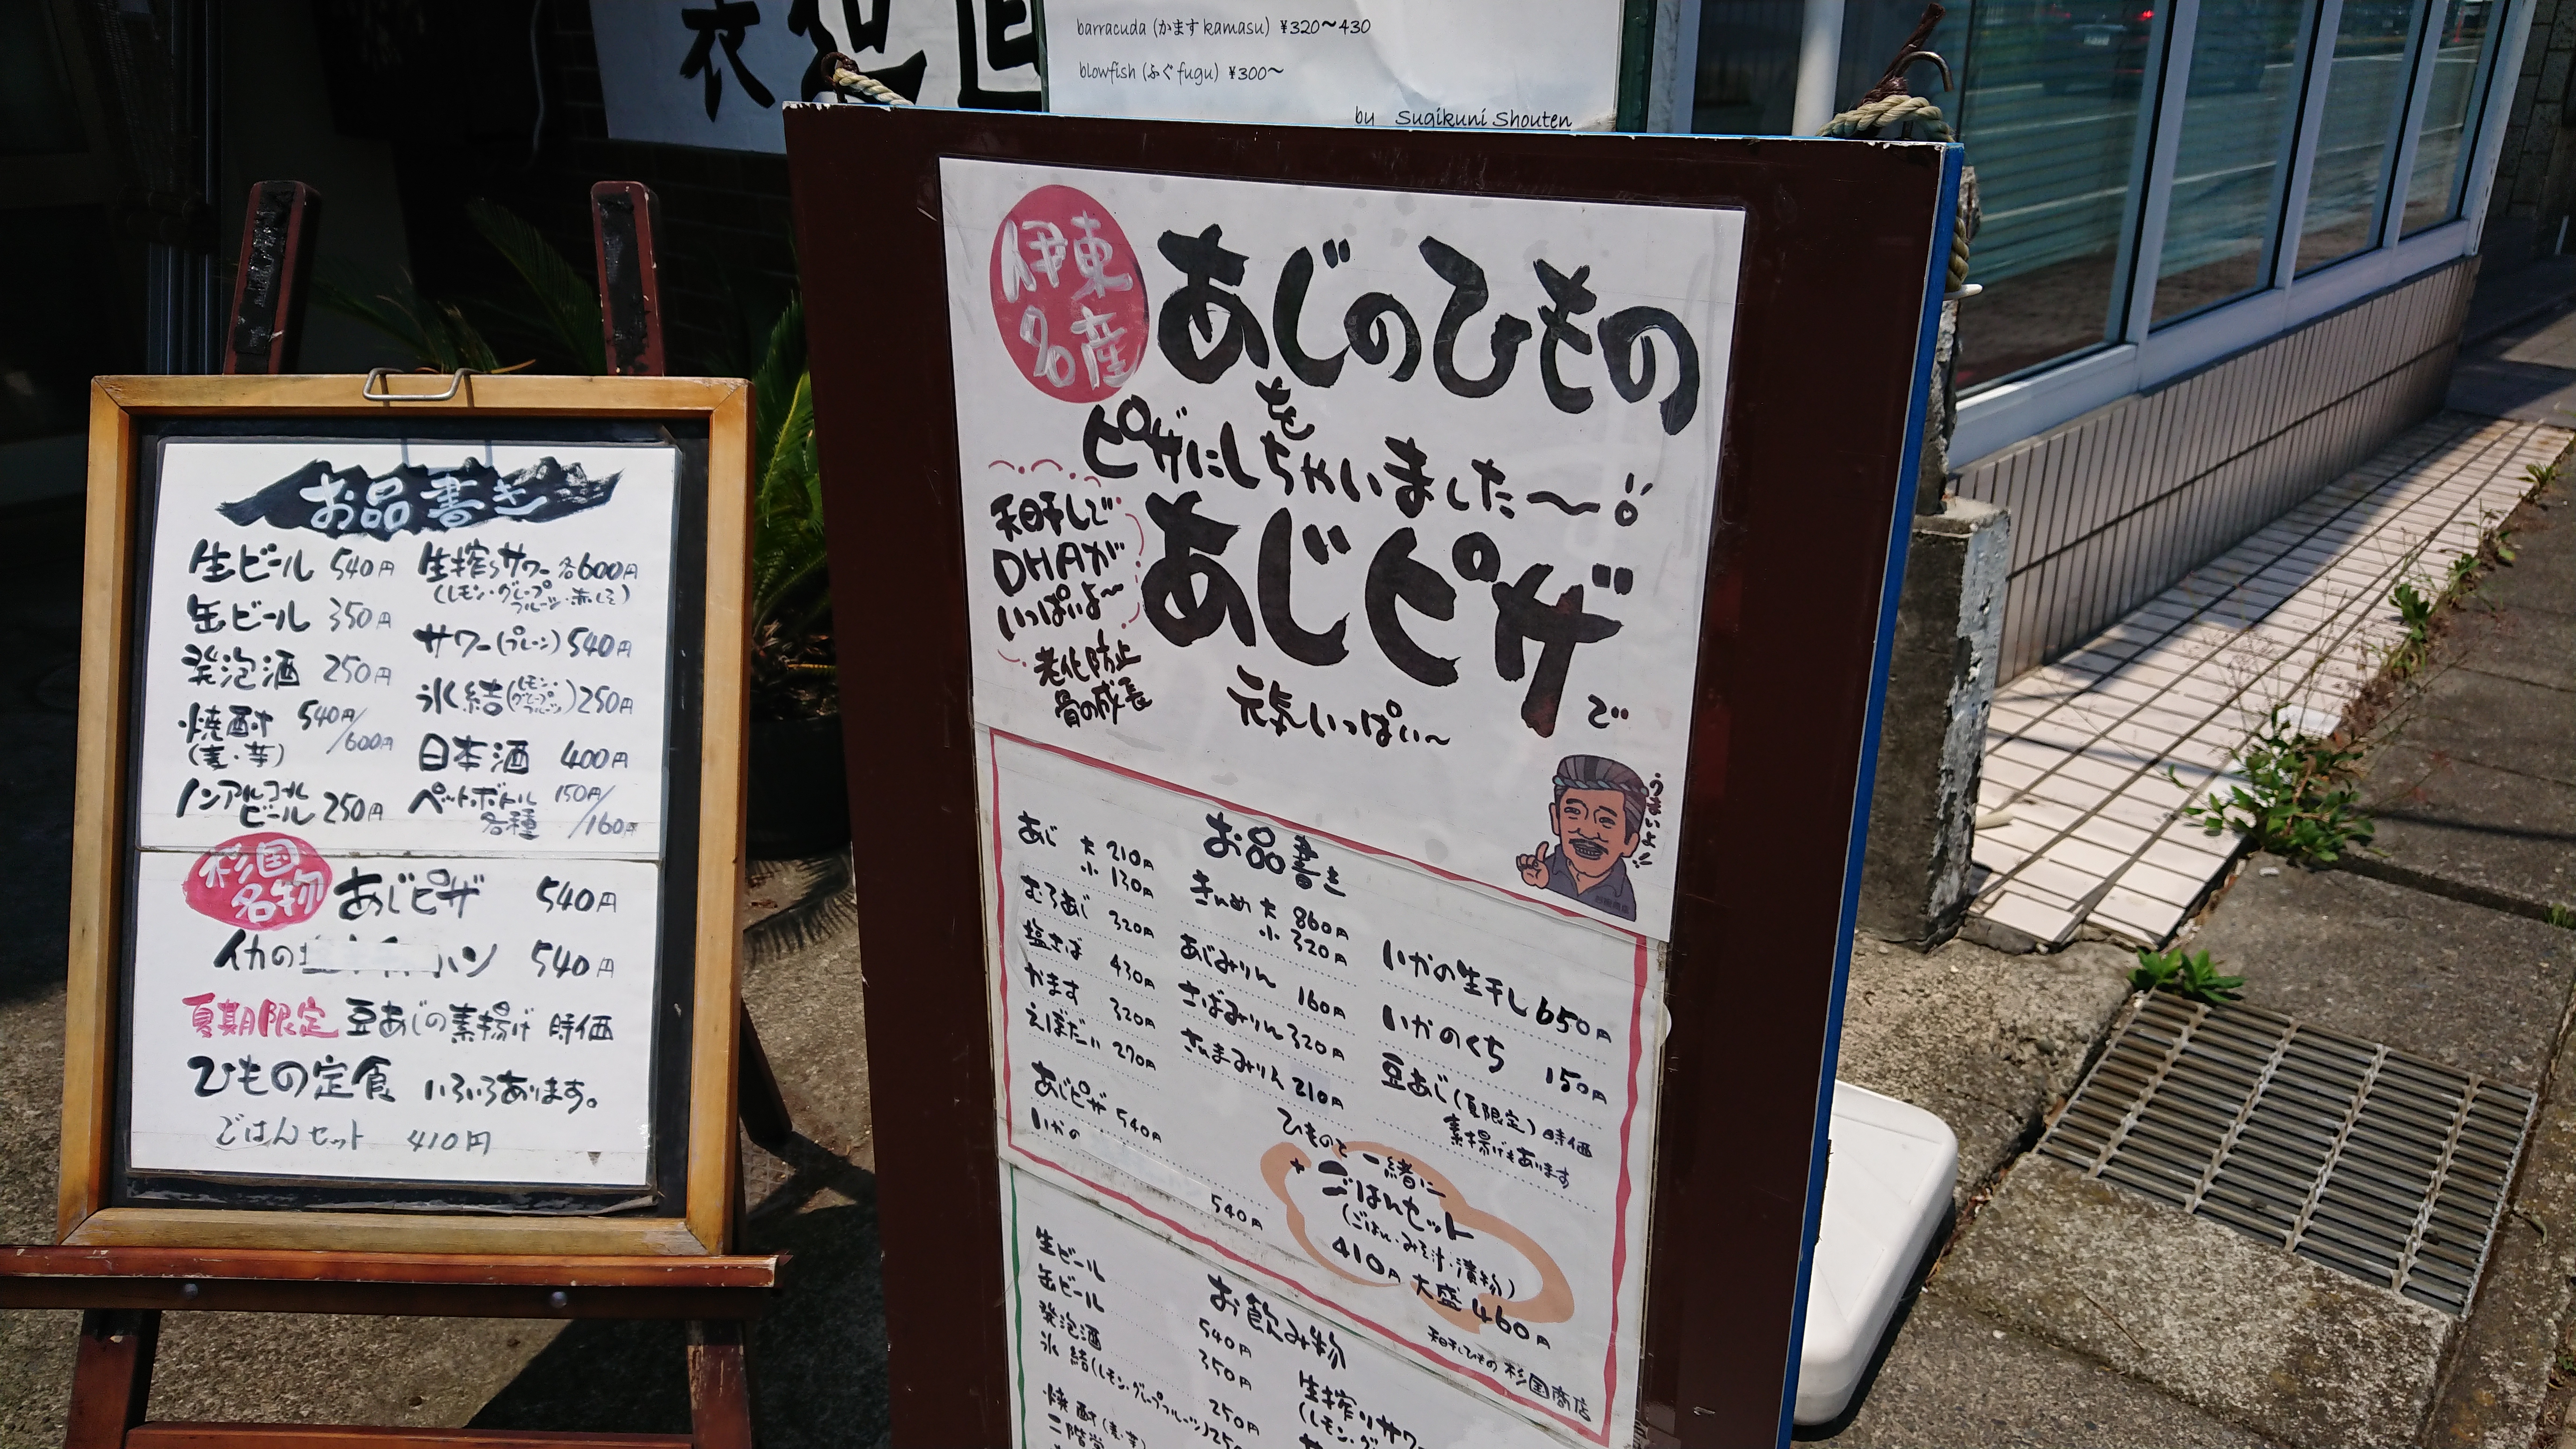 barracuda (かます kamasu) ¥320〜430
blowfish (ふぐ fugu) ¥300〜
by Sugikuni Shouten
お品書き
生ビール 540円
缶ビール 350円
発泡酒 250円
焼酎 540円/600円
(麦・芋)
ノンアルコールビール 250円
生搾りサワー 各600円
(レモン・グレープフルーツ・赤しそ)
サワー(プレーン) 540円
氷結(レモン・グレープフルーツ) 250円
日本酒 400円
ペットボトル各種 150円/160円
杉国名物
あじピザ 540円
イカの
ハン 540円
夏期限定 豆あじの素揚げ 時価
ひもの定食 いろいろあります。
ごはんセット 410円
伊東名産
あじのひもの
を
ピザにしちゃいました〜
天日干しで
DHAが
いっぱいよ〜
老化防止
骨の成長
あじピザで
元気いっぱい〜
うまいよ!!
お品書き
あじ 大 210円
小 130円
むろあじ 320円
塩さば 430円
かます 320円
えぼだい 270円
あじピザ 540円
いかの
540円
きんめ 大 860円
小 320円
あじみりん 160円
さばみりん 320円
さんまみりん 210円
いかの生干し 650円
いかのくち 150円
豆あじ(夏限定) 時価
素揚げもあります
ひものと一緒に
+ごはんセット
(ごはん・みそ汁・漬物)
410円 大盛 460円
天日干しひもの 杉国商店
お飲み物
生ビール 540円
缶ビール 350円
発泡酒 250円
氷結(レモン・グレープフルーツ) 25
焼酎(麦・芋)
二階堂
生搾りサワー
(レモン・グ